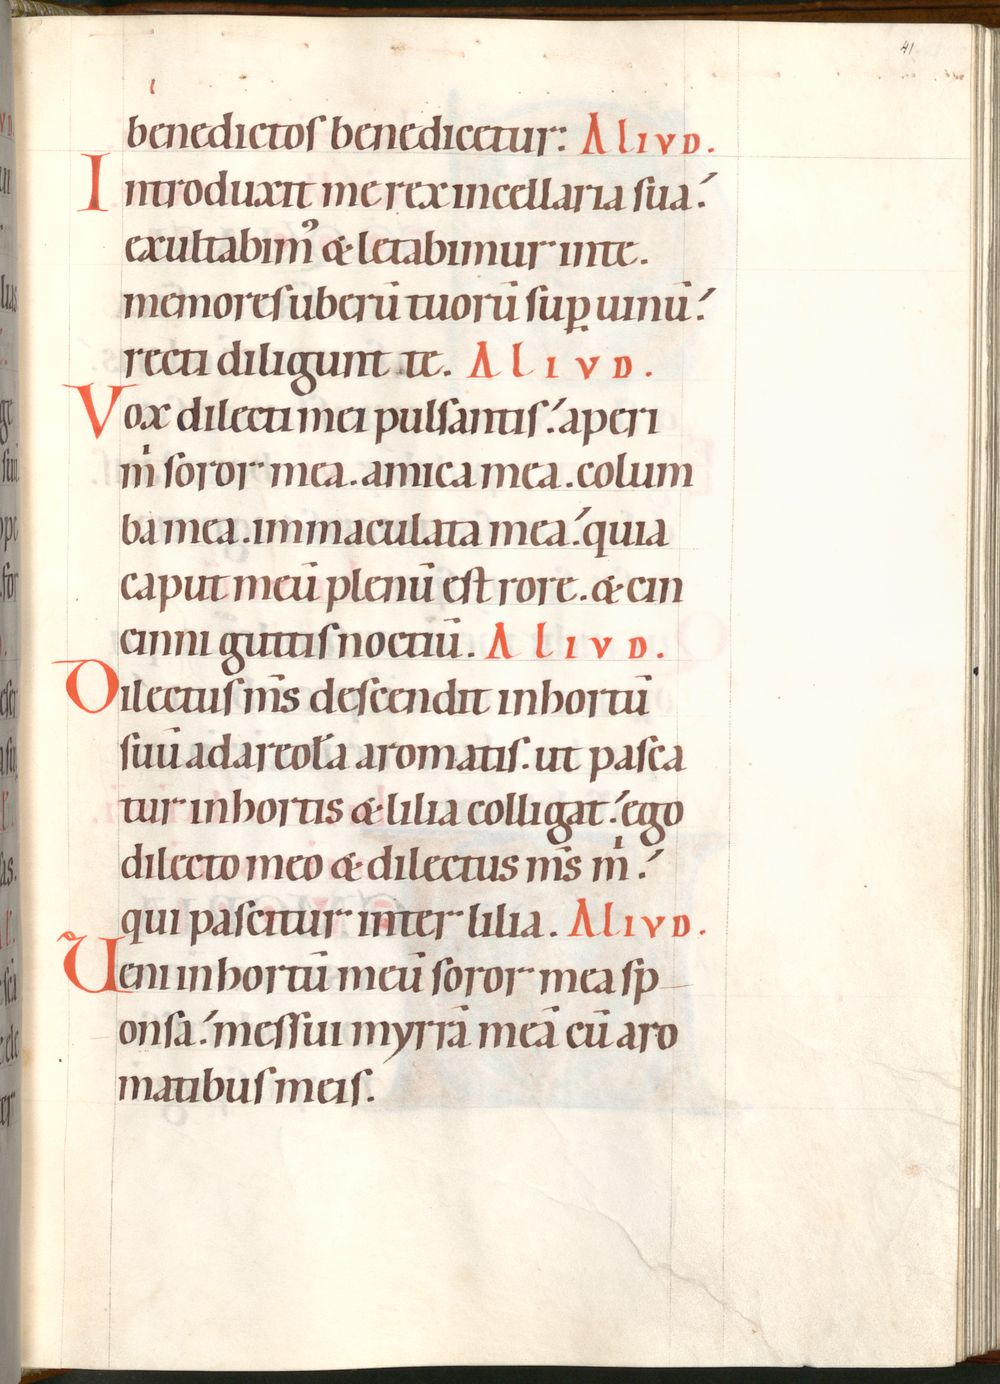 41
benedictos benedicetur: ALIVD.
Introduxit me rex in cellaria sua:
exultabimꝰ & letabimur in te.
memores uberū tuorū suꝑ uinū:
recti diligunt te. ALIVD.
Vox dilecti mei pulsantis: aperi
m̍ soror mea. amica mea. colum
ba mea. immaculata mea: quia
caput meū plenū est rore. & cin
cinni guttis noctiū. ALIVD.
Dilectus ms̄ descendit in hortū
suū ad areolā aromatis. ut pasca
tur in hortis & lilia colligat: ego
dilecto meo & dilectus ms̄ m̍:
qui pascitur inter lilia. ALIVD.
Ueni in hortū meū soror mea sp
onsa: messui myrrā meā cū aro
matibus meis.